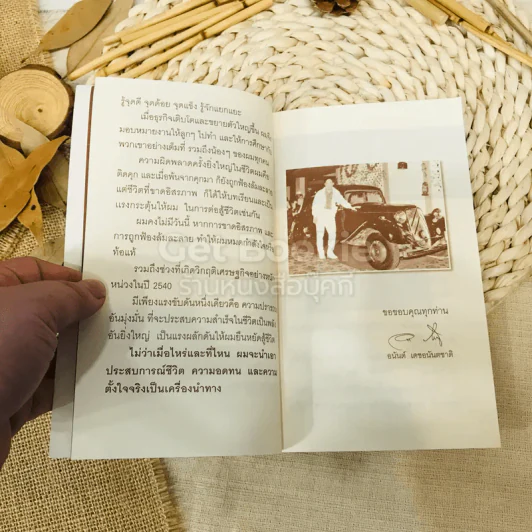 รู้จุดดี จุดด้อย จุดแข็ง รู้จักแยกแยะ
เมื่อธุรกิจเติบโตและขยายตัวใหญ่ขึ้น
มอบหมายงานให้ลูกๆ ไปทำ และให้การศึกษากับ
พวกเขาอย่างเต็มที่ รวมถึงน้องๆ ของผมทุกคน
ความผิดพลาดครั้งยิ่งใหญ่ในชีวิตผมคือ
ติดคุก และเมื่อพ้นจากคุกมา ก็ยังถูกฟ้องล้มละลาย
แต่ชีวิตที่ขาดอิสรภาพ ก็ได้ให้บทเรียนและเป็น
แรงกระตุ้นให้ผม ในการต่อสู้ชีวิตเช่นกัน
ผมคงไม่มีวันนี้ หากการขาดอิสรภาพ และ
การถูกฟ้องล้มละลาย ทำให้ผมหมดกำลังใจ
ท้อแท้
รวมถึงช่วงที่เกิดวิกฤติเศรษฐกิจอย่าง
หน่วงในปี 2540
มีเพียงแรงขับดันหนึ่งเดียวคือ ความปรารถ
อันมุ่งมั่น ที่จะประสบความสำเร็จในชีวิตเป็นพลัง
อันยิ่งใหญ่ เป็นแรงผลักดันให้ผมยืนหยัดสู้ชีวิต
ไม่ว่าเมื่อไหร่และที่ไหน ผมจะนำเอา
ประสบการณ์ชีวิต ความอดทน และความ
ตั้งใจจริงเป็นเครื่องนำทาง
ขอขอบคุณทุกท่าน
อนันต์ เดชอนันตชาติ
Get Bookie
ร้านหนังสือบุคกี้